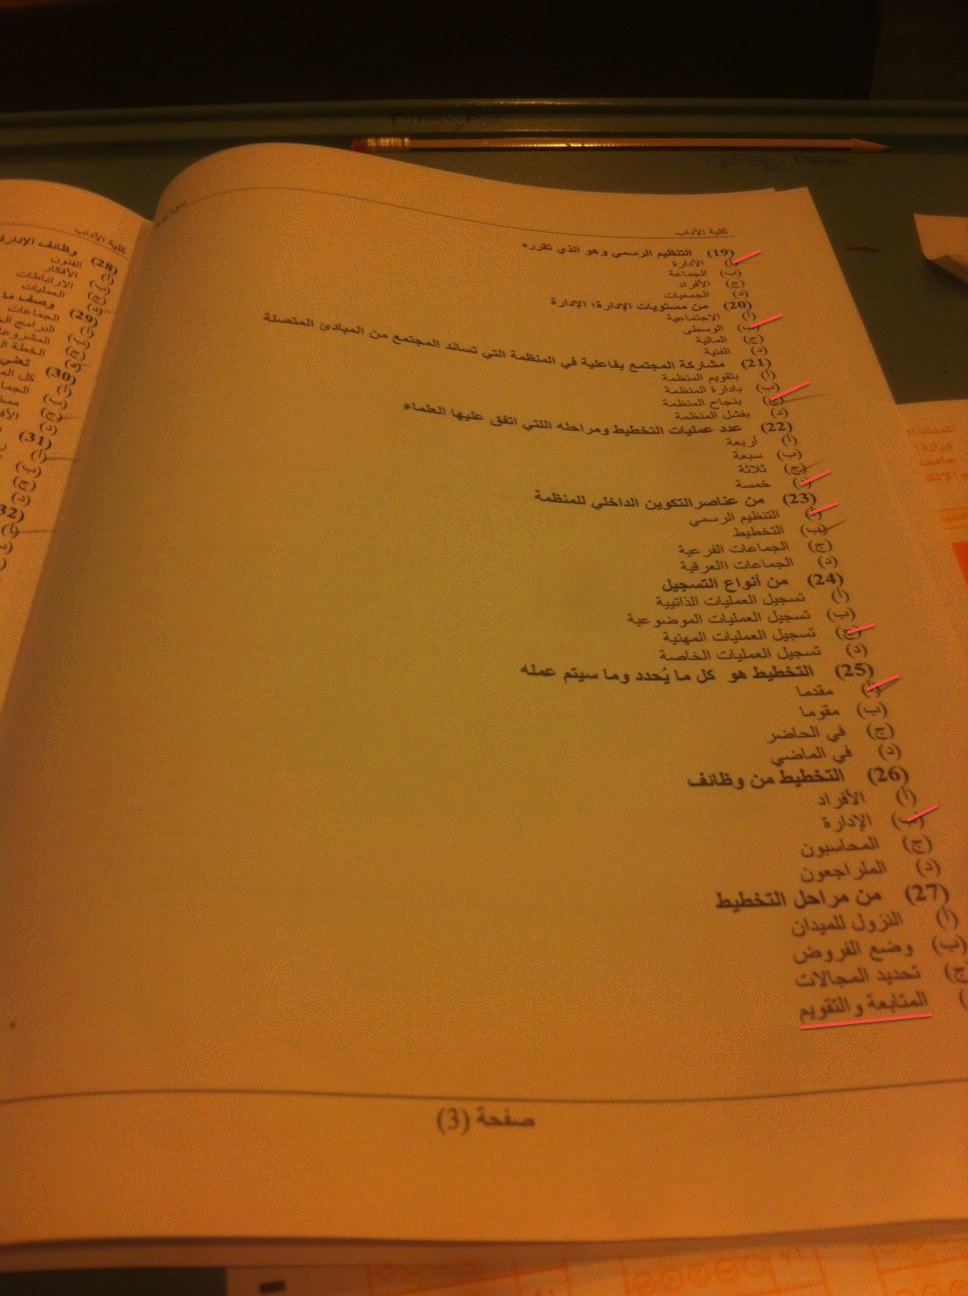 كلية الأداب
(19) التنظيم الرسمي وهو الذي تقرره
أ) الأدارة
(ب) الجماعة
(ج) الأفراد
(د) الجمعيات
(20) من مستويات الإدارة؛ الإدارة
(أ) الاجتماعية
(ب) الوسطى
(ج) المالية
(د) الفنية
(21) مشاركة المجتمع بفاعلية في المنظمة التي تساند المجتمع من المبادئ المتصلة
(أ) بتقويم المنظمة
(ب) بادارة المنظمة
(ج) بنجاح المنظمة
(د) بفشل المنظمة
(22) عدد عمليات التخطيط ومراحله اللتي اتفق عليها العلماء
(أ) أربعة
(ب) سبعة
(ج) ثلاثة
(د) خمسة
(23) من عناصرالتكوين الداخلي للمنظمة
(أ) التنظيم الرسمي
(ب) التخطيط
(ج) الجماعات الفرعية
(د) الجماعات االعرقية
(24) من أنواع التسجيل
(أ) تسجيل العمليات الذاتيية
(ب) تسجيل العمليات الموضوعية
(ج) تسجيل العمليات المهنية
(د) تسجيل العمليات الخاصة
(25) التخطيط هو كل ما يُحدد وما سيتم عمله
(أ) مقدما
(ب) مقوما
(ج) في الحاضر
(د) في الماضي
(26) التخطيط من وظائف
(أ) الأفراد
(ب) الإدارة
(ج) المحاسبون
(د) الملراجعون
(27) من مراحل التخطيط
(أ) النزول للميدان
(ب) وضع الفروض
(ج) تحديد المجالات
المتابعة والتقويم
صفحة (3)
كلية الأداب
(28) وظائف الإدارة
الفنون
الأفكار
الارتباطات
العمليات
(29) وصف ما
الجماعات
البرامج
المشروعا
الخطة
(30) تعني
كل
(31)